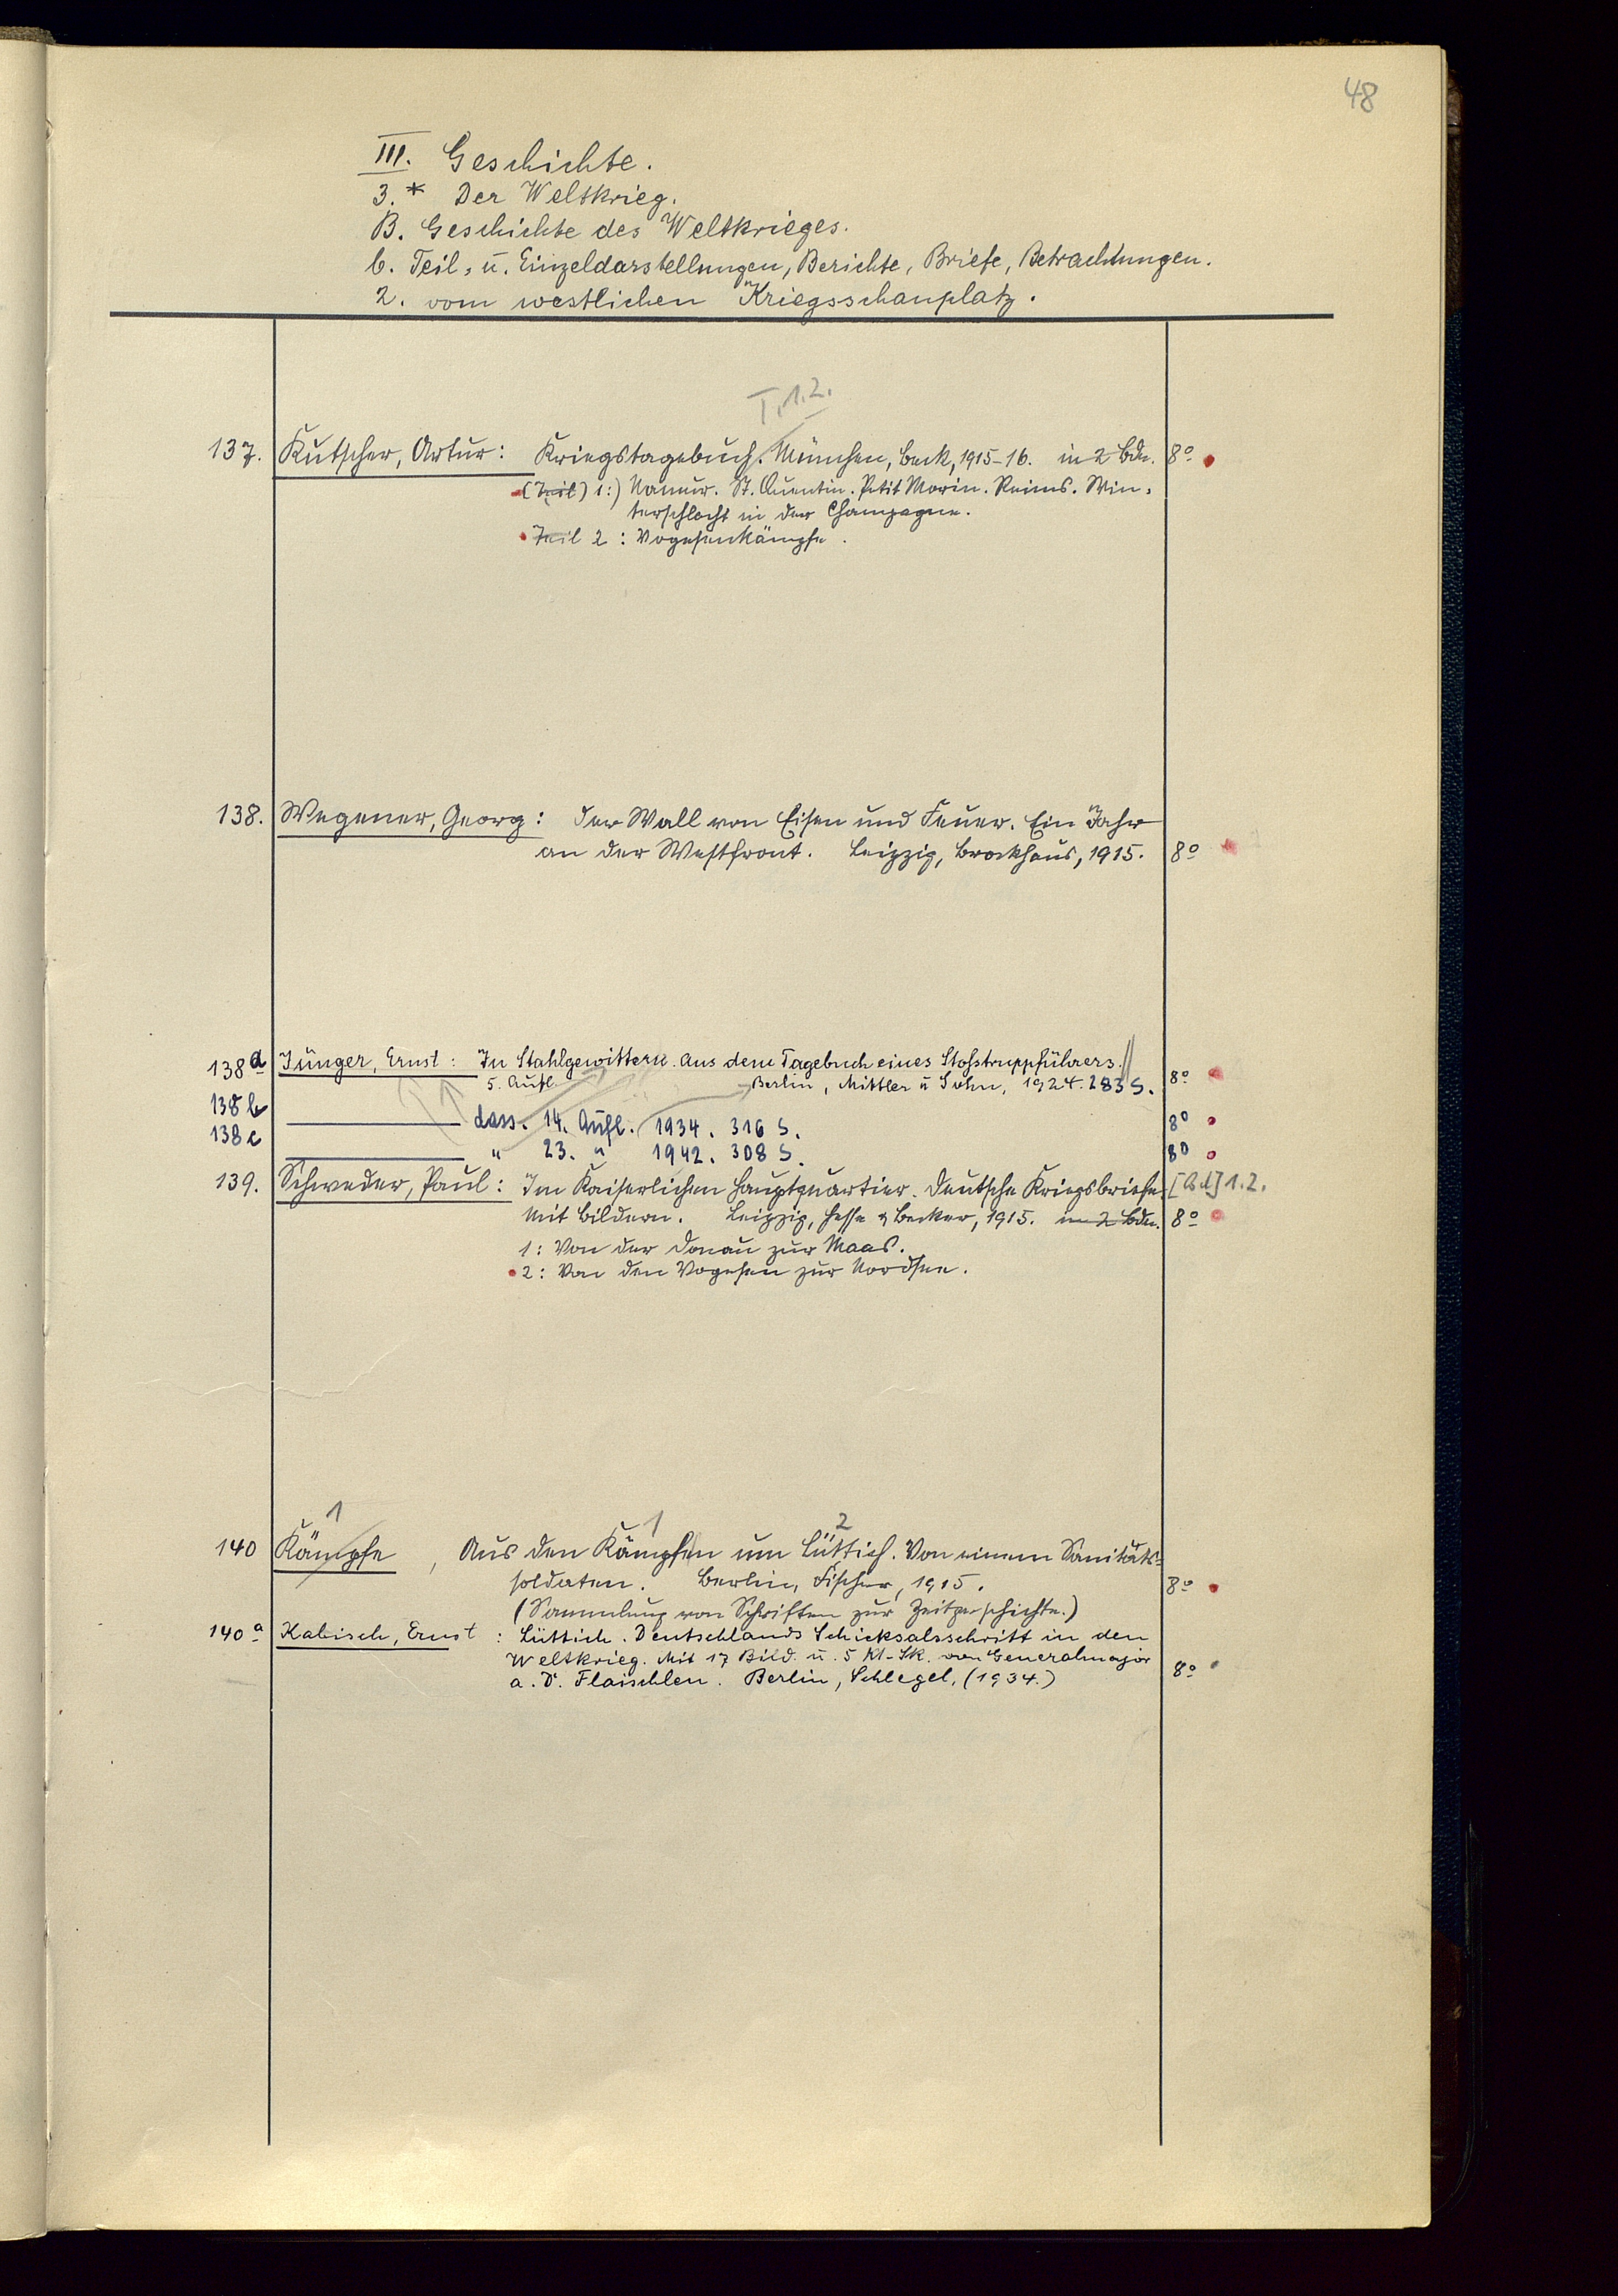 48
III. Geschichte.
3.* Der Weltkrieg.
B. Geschichte des Weltkrieges.
b. Teil- u. Einzeldarstellungen, Berichte, Briefe, Betrachtungen.
2. vom westlichen Kriegsschauplatz.
T. 1.2.
137. Kutscher, Artur: Kriegstagebuch. München, Beck, 1915-16. in 2 Bdn. 8º
(Teil) 1:) Namur. St. Quentin. Petit Morin. Reims. Win-
terschlacht in der Champagne.
Teil 2: Vogesenkämpfe.
138. Wegener, Georg: Der Wall von Eisen und Feuer. Ein Jahr
an der Westfront. Leipzig, Brockhaus, 1915. 8º
138a Jünger, Ernst: In Stahlgewittern. Aus dem Tagebuch eines Stoßtruppführers.
5. Aufl. Berlin, Mittler u Sohn, 1924. 283 S. 8º
138b dass. 14. Aufl. 1934. 316 S. 8º
138c " 23. " 1942. 308 S. 8º
139. Schweder, Paul: Im Kaiserlichen Hauptquartier. Deutsche Kriegsbriefe. [Bd] 1.2.
Mit Bildern. Leipzig, Hesse & Becker, 1915. in 2 Bdn. 8º
1: Von der Donau zur Maas.
2: Von den Vogesen zur Nordsee.
1 1 2
140 Kämpfe, Aus den Kämpfen um Lüttich. Von einem Sanitäts-
soldaten. Berlin, Fischer, 1915. 8º
(Sammlung von Schriften zur Zeitgeschichte.)
140a Kabisch, Ernst: Lüttich. Deutschlands Schicksalsschritt in den
Weltkrieg. Mit 17 Bild. u. 5 Kt-Sk. von Generalmajor
a. D. Flaischlen. Berlin, Schlegel, (1934.) 8º